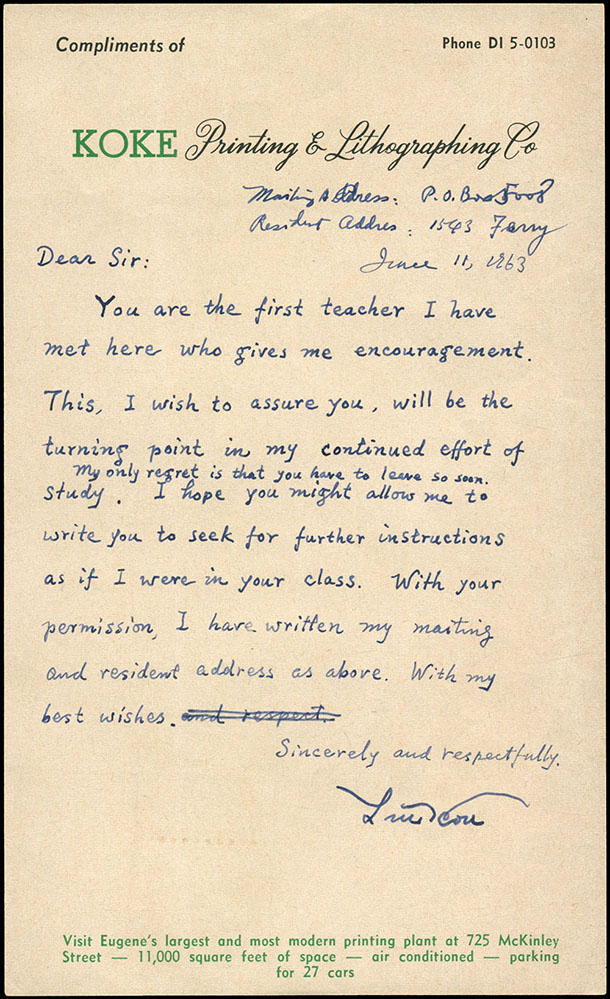 Compliments of
Phone DI 5-0103
KOKE Printing & Lithographing Co
Mailing Address: P.O. Box
Resident Addres: 1543 Ferry
June 11, 1963
Dear Sir:
You are the first teacher I have
met here who gives me encouragement.
This, I wish to assure you, will be the
turning point in my continued effort of
My only regret is that you have to leave so soon.
study. I hope you might allow me to
write you to seek for further instructions
as if I were in your class. With your
permission, I have written my mailing
and resident address as above. With my
best wishes. and respect.
Sincerely and respectfully.
Visit Eugene's largest and most modern printing plant at 725 McKinley
Street — 11,000 square feet of space — air conditioned — parking
for 27 cars